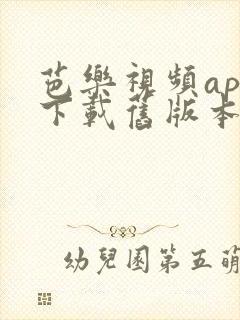 芭樂視頻ap
下載舊版本
幼兒園第五萌